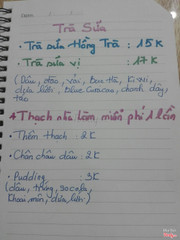 Trà Sữa
• Trà sữa Hồng Trà : 15K
• Trà sữa vị : 17K
(Dâu, đào, vải, bạc hà, kiwi,
dưa lưới, blue curacao, chanh dây,
táo
4 Thạch nhà làm miễn phí 1 lần
• Thêm thạch : 2K
• Chân châu dâu : 2K
• Pudding : 3K
(dâu, trứng, socola,
khoai môn, dưa lưới)